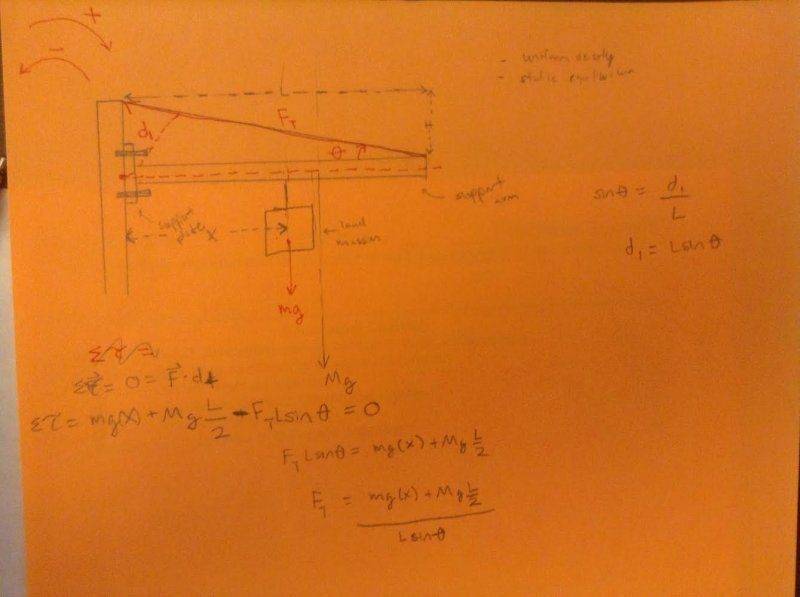 +
-
- uniform density
- static equilibrium
L
F_T
d₁
θ
support arm
support plate
x
load mass m
mg
Mg
sinθ = d₁/L
d₁ = Lsinθ
Στ = 0 = F⃗·d⊥
Στ = mg(x) + Mg L/2 - F_T Lsinθ = 0
F_T Lsinθ = mg(x) + Mg L/2
F_T = mg(x) + Mg L/2
Lsinθ